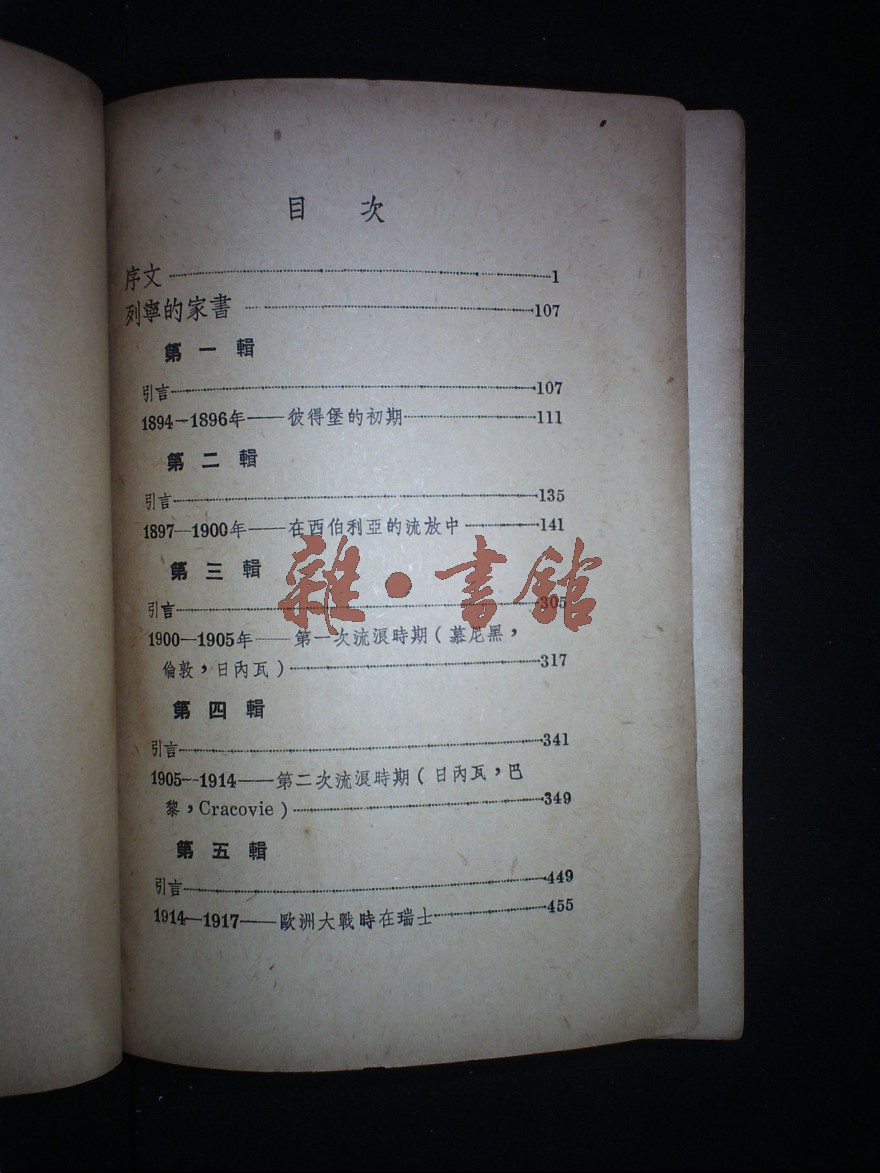 目 次
序文 1
列寧的家書 107
第一輯
引言 107
1894-1896年——彼得堡的初期 111
第二輯
引言 135
1897—1900年——在西伯利亞的流放中 141
第三輯
引言 305
1900-1905年——第一次流浪時期(慕尼黑,
倫敦,日內瓦) 317
第四輯
引言 341
1905--1914——第二次流浪時期(日內瓦,巴
黎,Cracovie) 349
第五輯
引言 449
1914—1917——歐洲大戰時在瑞士 455
雜·書館